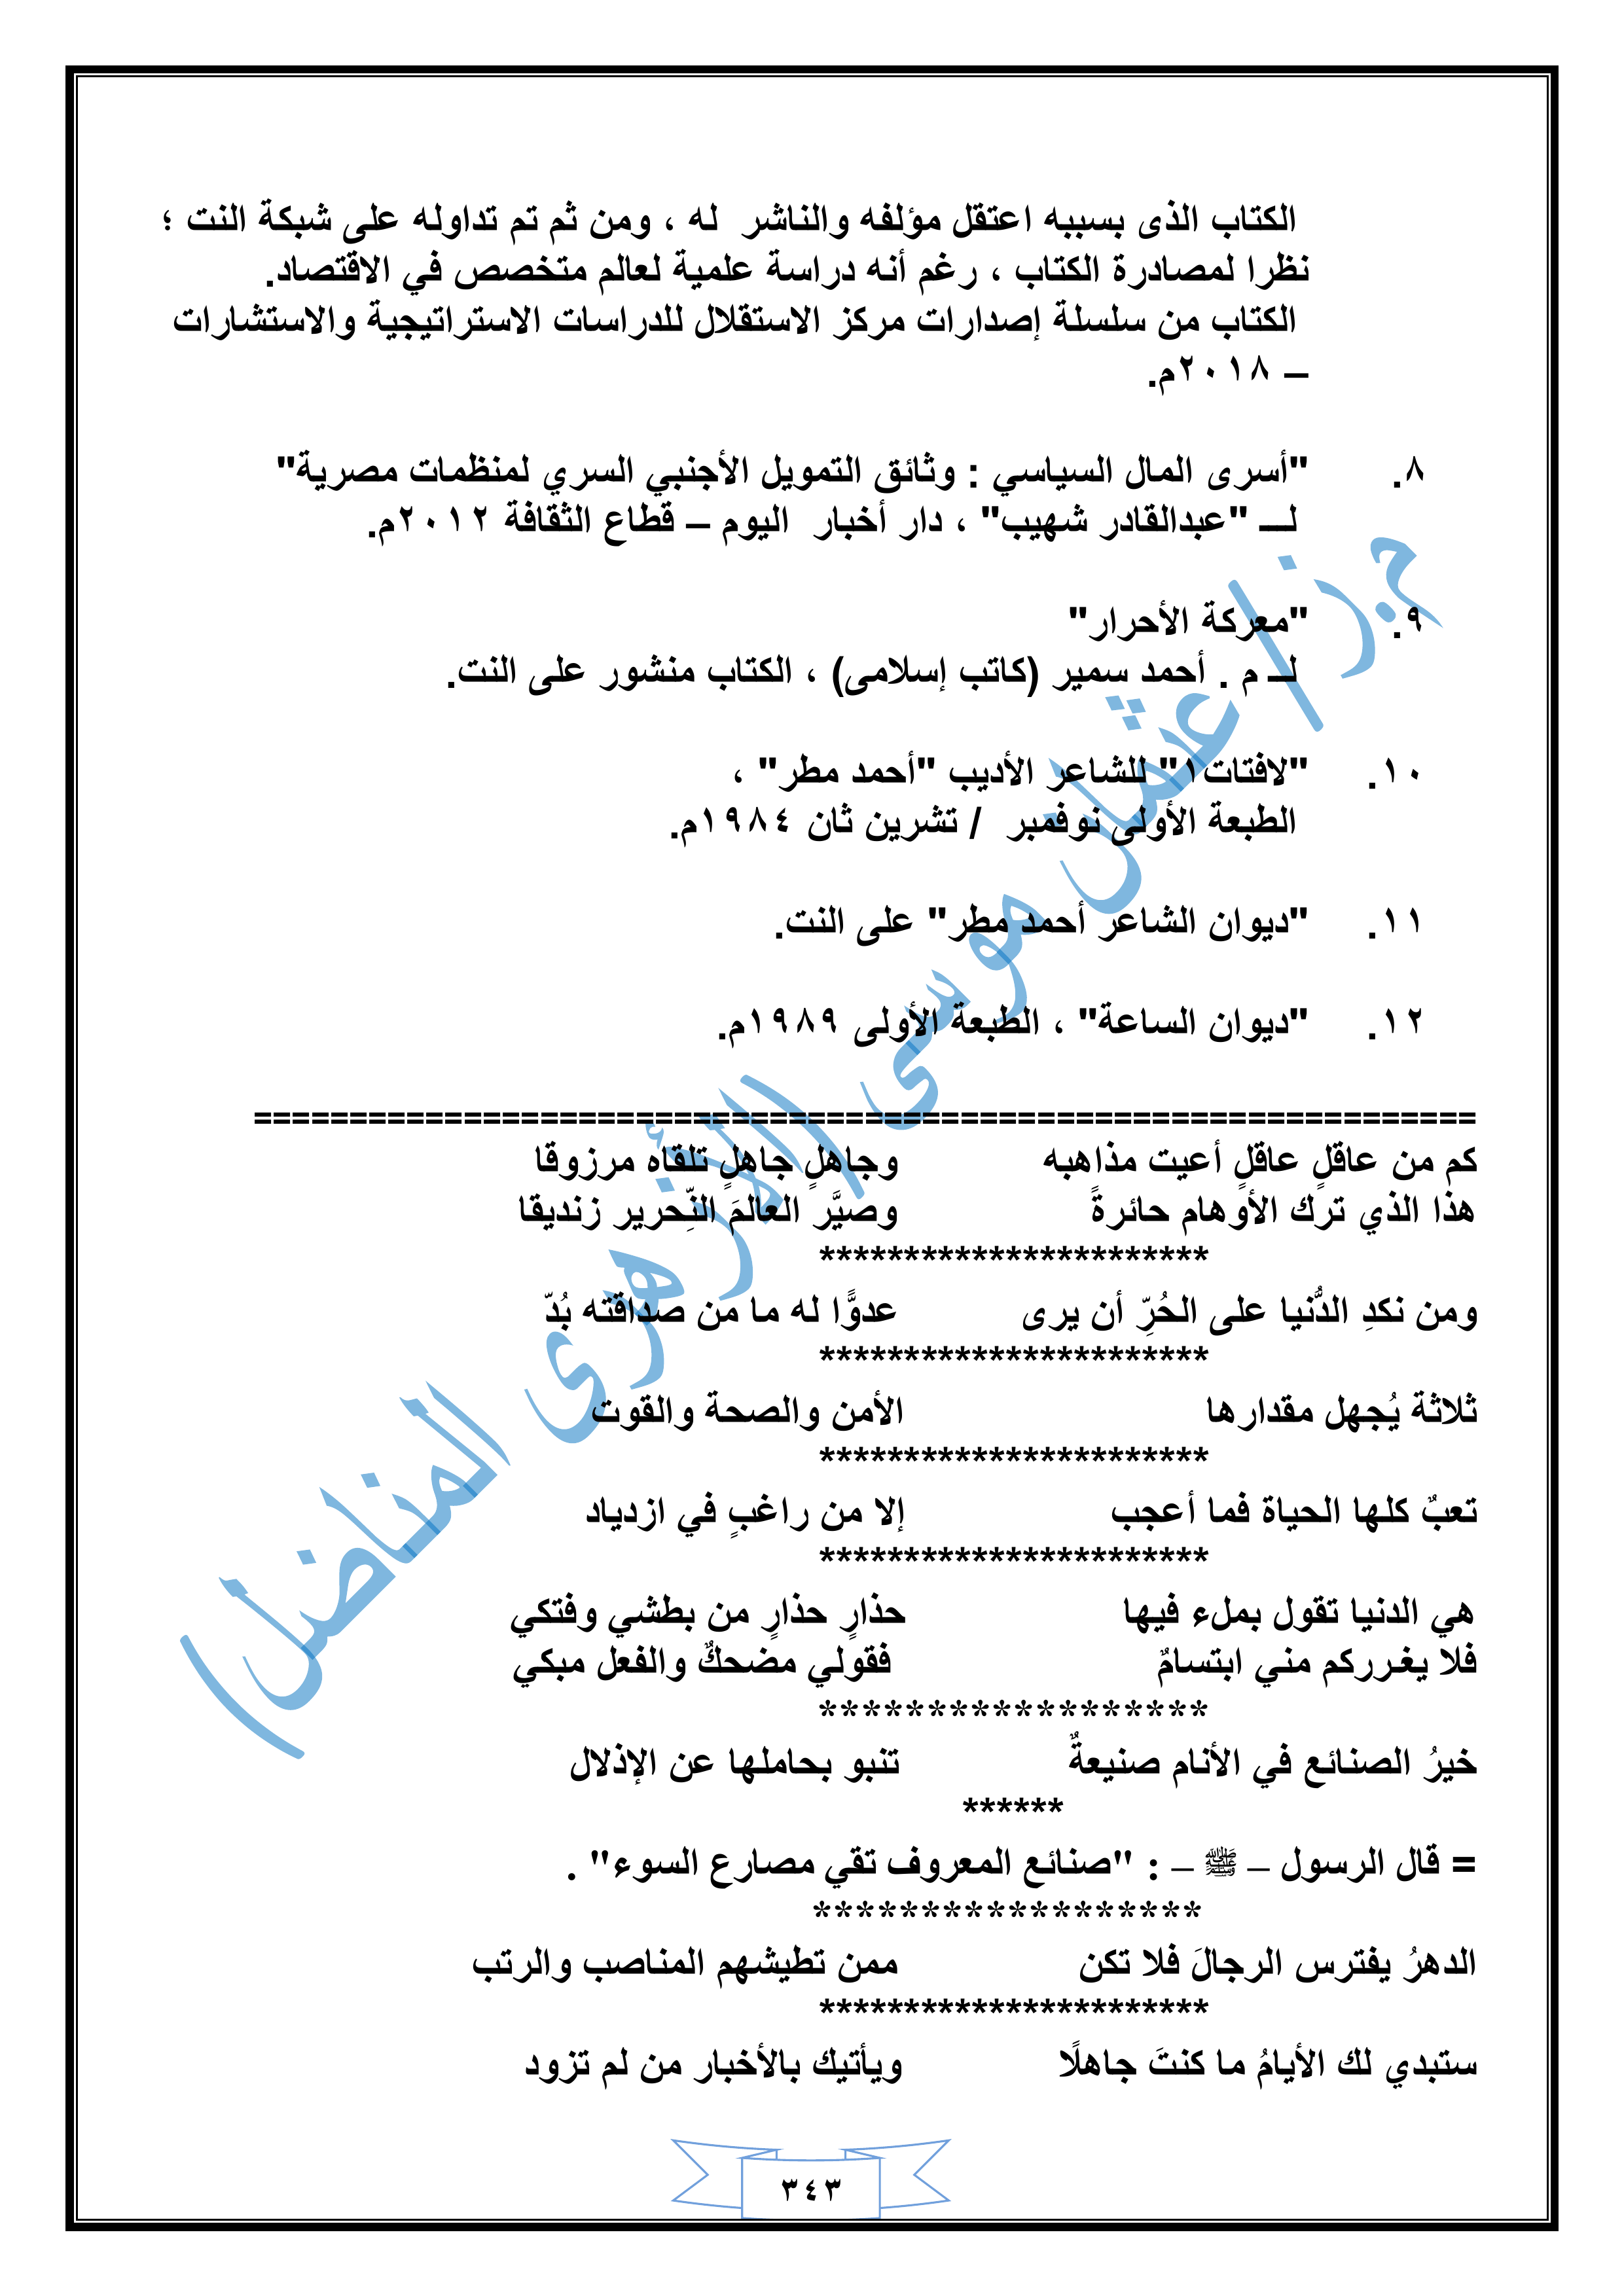 الكتاب الذى بسببه اعتقل مؤلفه والناشر له ، ومن ثم تم تداوله على شبكة النت ؛
نظرا لمصادرة الكتاب ، رغم أنه دراسة علمية لعالم متخصص في الاقتصاد.
الكتاب من سلسلة إصدارات مركز الاستقلال للدراسات الاستراتيجية والاستشارات
– ٢٠١٨م.
٨. "أسرى المال السياسي : وثائق التمويل الأجنبي السري لمنظمات مصرية"
لـــ "عبدالقادر شهيب" ، دار أخبار اليوم – قطاع الثقافة ٢٠١٢م.
٩. "معركة الأحرار"
لـــ م . أحمد سمير (كاتب إسلامى) ، الكتاب منشور على النت.
١٠. "لافتات١" للشاعر الأديب "أحمد مطر" ،
الطبعة الأولى نوفمبر / تشرين ثان ١٩٨٤م.
١١. "ديوان الشاعر أحمد مطر" على النت.
١٢. "ديوان الساعة" ، الطبعة الأولى ١٩٨٩م.
================================================================
كم من عاقلٍ عاقلٍ أعيت مذاهبه وجاهلٍ جاهلٍ تلقاه مرزوقا
هذا الذي ترك الأوهام حائرةً وصيَّر العالمَ النِّحرير زنديقا
***********************
ومن نكدِ الدُّنيا على الحُرِّ أن يرى عدوًّا له ما من صداقته بُدّ
***********************
ثلاثة يُجهل مقدارها الأمن والصحة والقوت
***********************
تعبٌ كلها الحياة فما أعجب إلا من راغبٍ في ازدياد
***********************
هي الدنيا تقول بملء فيها حذارٍ حذارٍ من بطشي وفتكي
فلا يغـرركم مني ابتسامٌ فقولي مضحكٌ والفعل مبكي
******************
خيرُ الصنائع في الأنام صنيعةٌ تنبو بحاملها عن الإذلال
******
= قال الرسول – ﷺ – : "صنائع المعروف تقي مصارع السوء" .
******************
الدهرُ يفترس الرجالَ فلا تكن ممن تطيشهم المناصب والرتب
***********************
ستبدي لك الأيامُ ما كنتَ جاهلًا ويأتيك بالأخبار من لم تزود
٣٤٣
م.ز/ عثمان موسى (الأزهرى المناضل)